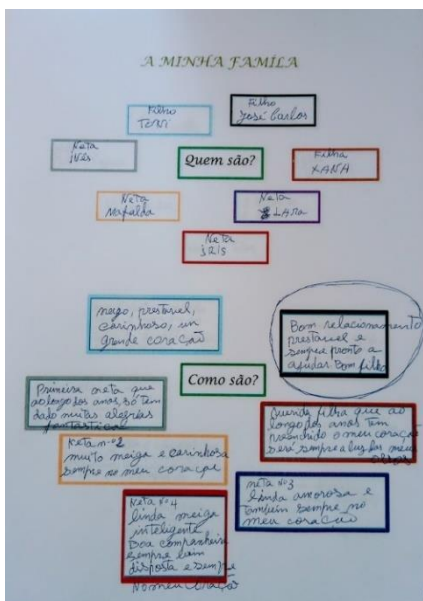 A MINHA FAMÍLA
Filho
TONI
Filho
José Carlos
Neta
INÊS
Quem são?
Filha
XANA
Neta
Mafalda
Neta
LARA
Neta
meigo, prestavel,
carinhoso, um
grande coração
Bom relacionamento
prestavel e
sempre pronto a
ajudar. Bom filho
Como são?
Primeira neta que
ao longo dos anos, só tem
dado muitas alegrias
fantastica
Querida filha que ao
longo dos anos tem
preenchido o meu coração
será sempre a luz dos meus
olhos
Neta nº 2
muito meiga e carinhosa
sempre no meu coração
neta Nº 3
Linda amorosa e
tambem sempre no
meu coração
Neta Nº 4
linda meiga
inteligente
Boa companheira
sempre bem
disposta e sempre
No meu coração